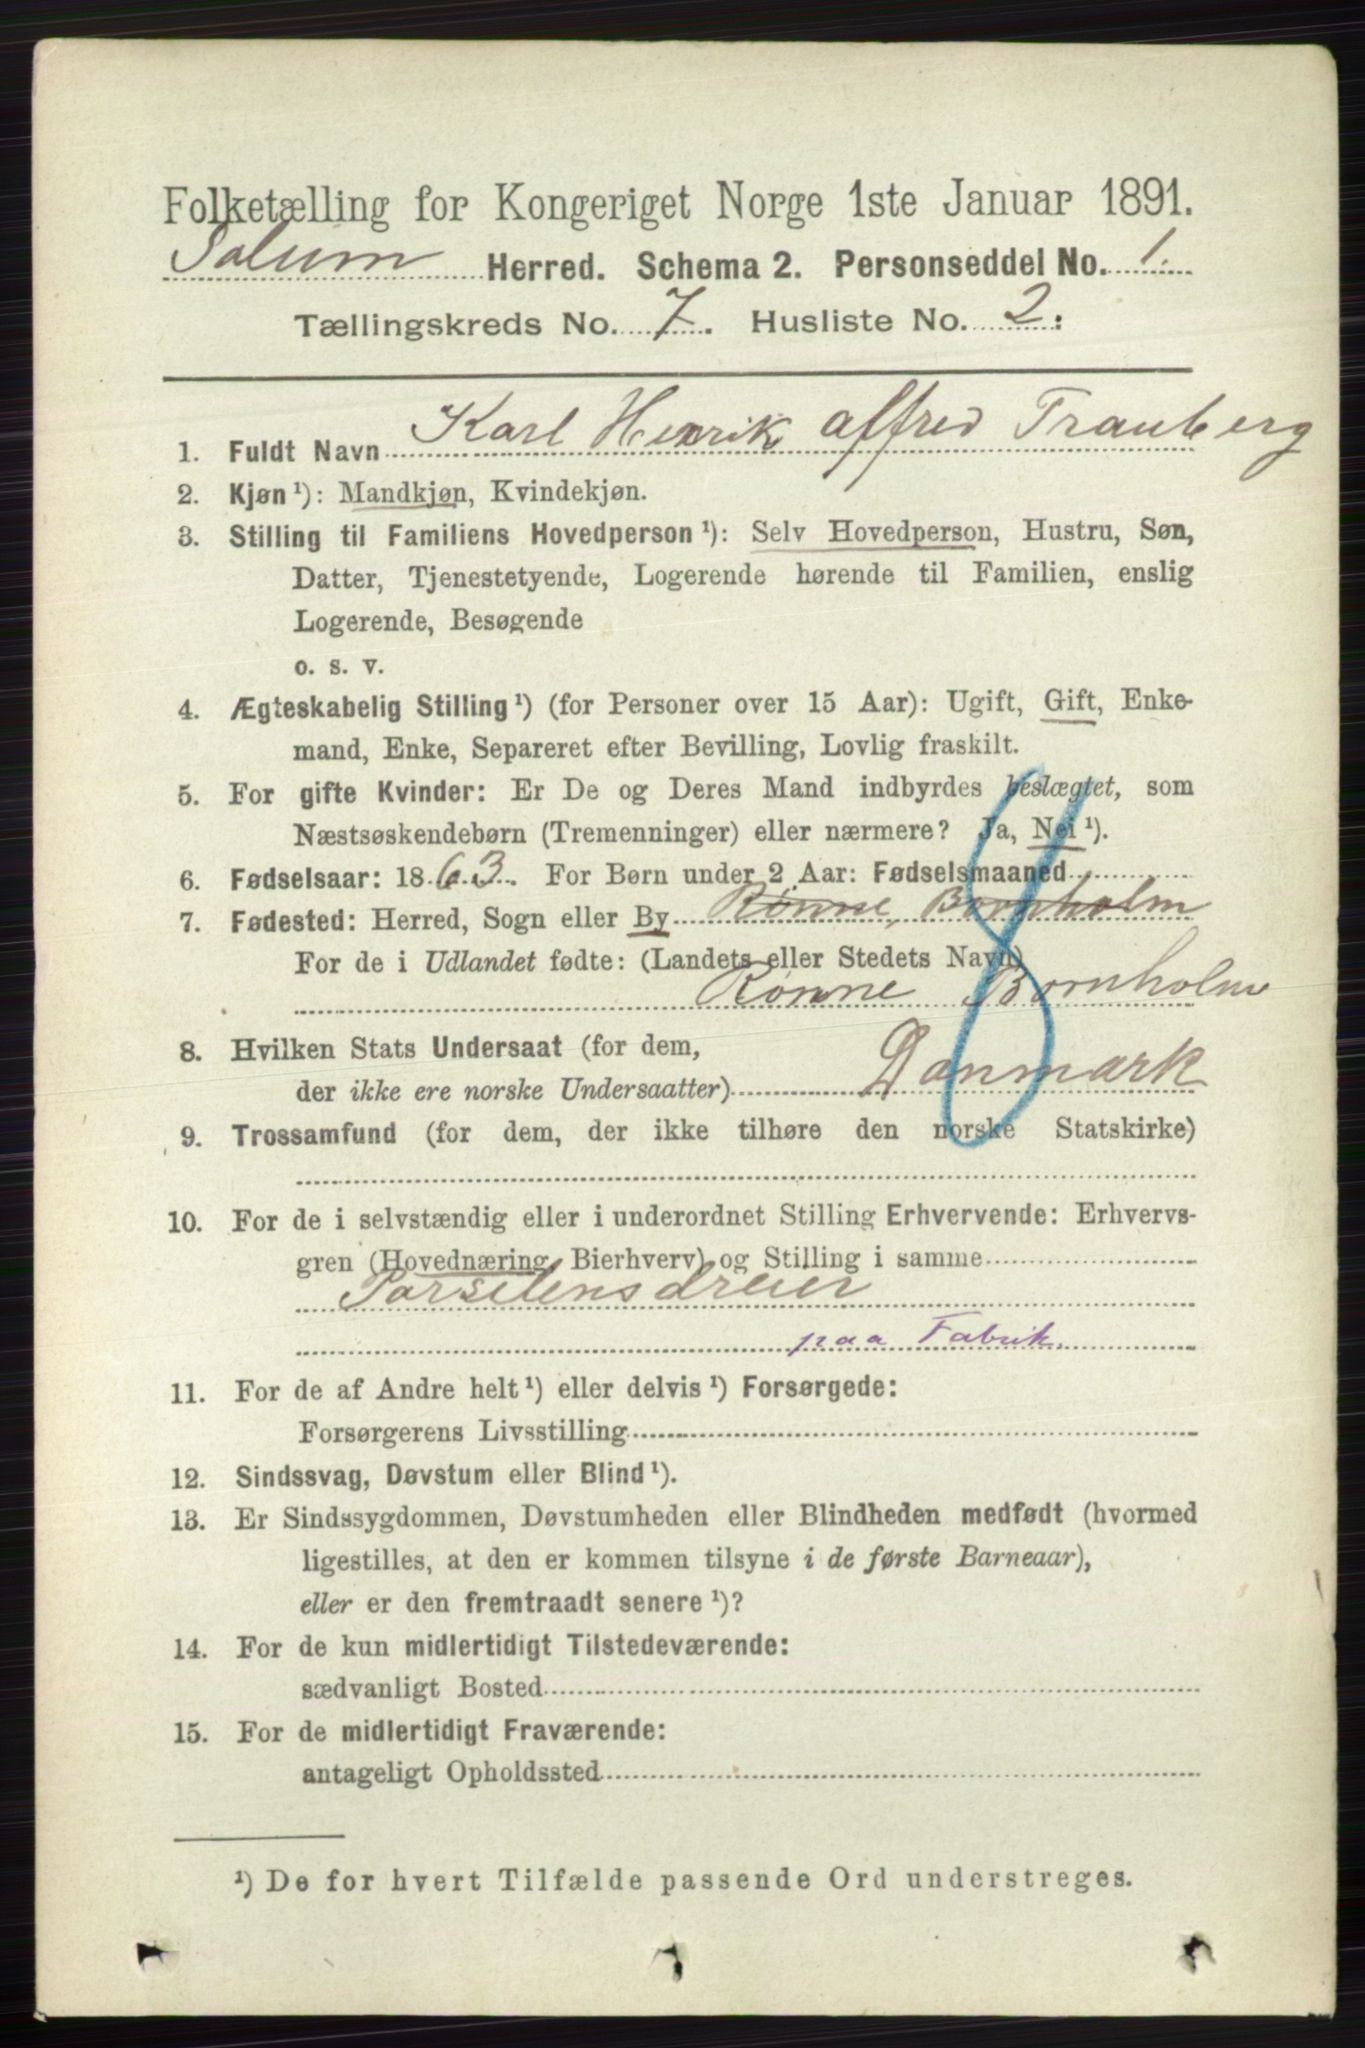 Folketælling for Kongeriget Norge 1ste Januar 1891.
Solum Herred. Schema 2. Personseddel No. 1.
Tællingskreds No. 7. Husliste No. 2:
1. Fuldt Navn Karl Henrik Alfred Trauberg
2. Kjøn ¹): Mandkjøn, Kvindekjøn.
3. Stilling til Familiens Hovedperson ¹): Selv Hovedperson, Hustru, Søn,
Datter, Tjenestetyende, Logerende hørende til Familien, enslig
Logerende, Besøgende
o. s. v.
4. Ægteskabelig Stilling ¹) (for Personer over 15 Aar): Ugift, Gift, Enke-
mand, Enke, Separeret efter Bevilling, Lovlig fraskilt.
5. For gifte Kvinder: Er De og Deres Mand indbyrdes beslægtet, som
Næstsøskendebørn (Tremenninger) eller nærmere? Ja, Nei ¹).
6. Fødselsaar: 1863. For Børn under 2 Aar: Fødselsmaaned
7. Fødested: Herred, Sogn eller By Rønne, Bornholm
For de i Udlandet fødte: (Landets eller Stedets Navn)
Rønne Bornholm
8. Hvilken Stats Undersaat (for dem,
der ikke ere norske Undersaatter) Danmark
9. Trossamfund (for dem, der ikke tilhøre den norske Statskirke)
10. For de i selvstændig eller i underordnet Stilling Erhvervende: Erhvervs-
gren (Hovednæring, Bierhverv) og Stilling i samme
Porselensdreier
paa Fabrik.
11. For de af Andre helt ¹) eller delvis ¹) Forsørgede:
Forsørgerens Livsstilling
12. Sindssvag, Døvstum eller Blind ¹).
13. Er Sindssygdommen, Døvstumheden eller Blindheden medfødt (hvormed
ligestilles, at den er kommen tilsyne i de første Barneaar),
eller er den fremtraadt senere ¹)?
14. For de kun midlertidigt Tilstedeværende:
sædvanligt Bosted
15. For de midlertidigt Fraværende:
antageligt Opholdssted
¹) De for hvert Tilfælde passende Ord understreges.
8